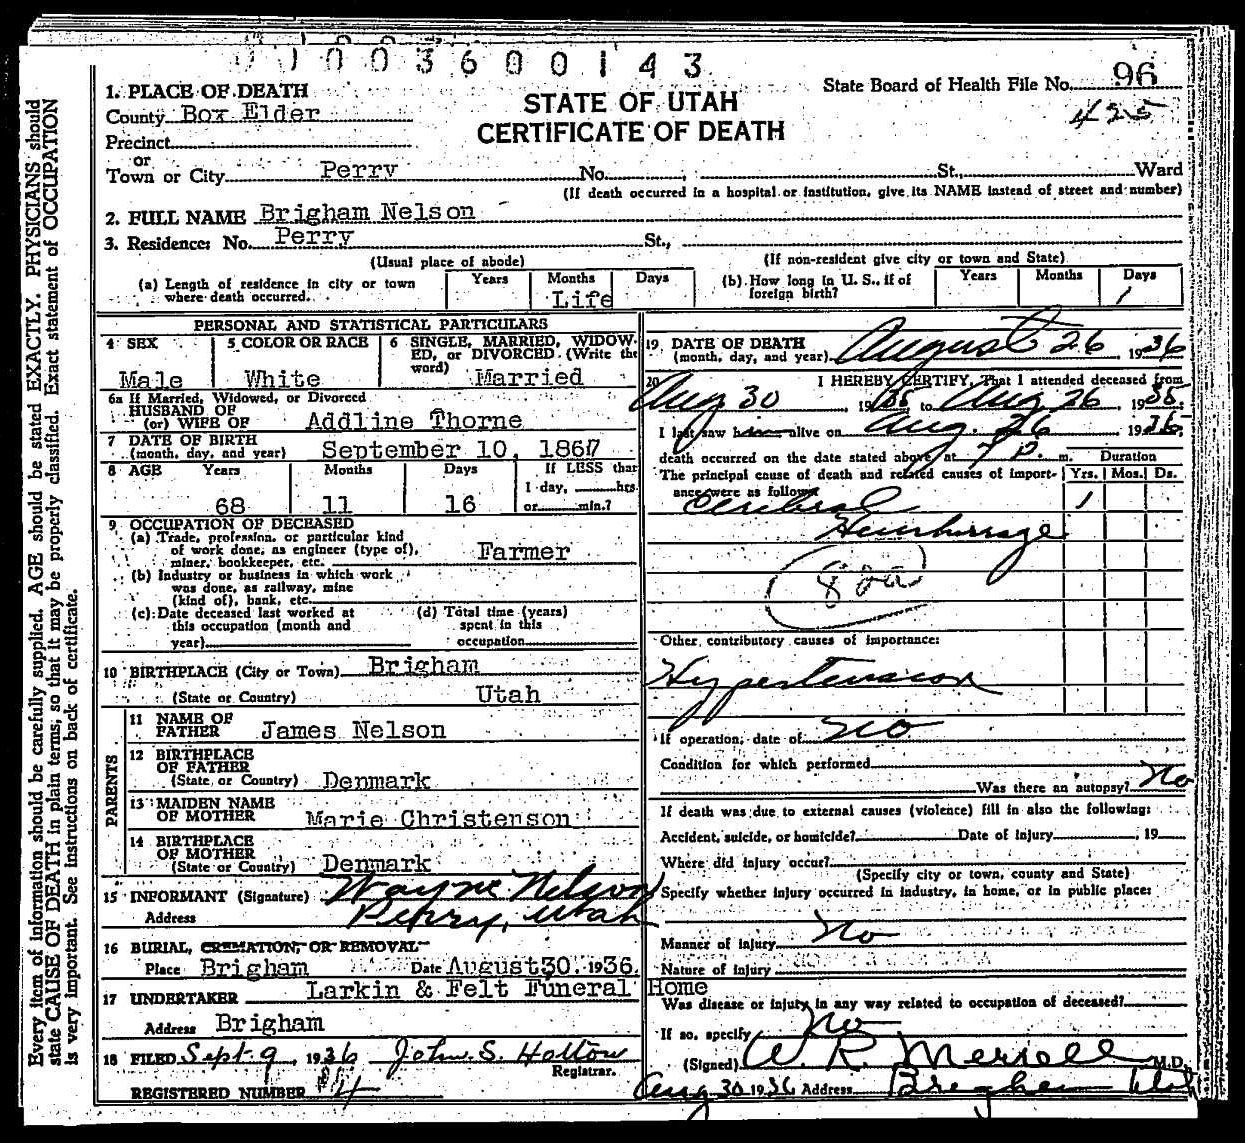 1003600143
State Board of Health File No. 96
425
STATE OF UTAH
CERTIFICATE OF DEATH
1. PLACE OF DEATH
County Box Elder
Precinct
or
Town or City Perry No. , St., Ward
(If death occurred in a hospital or institution, give its NAME instead of street and number)
2. FULL NAME Brigham Nelson
3. Residence: No. Perry St.,
(Usual place of abode) (If non-resident give city or town and State)
(a) Length of residence in city or town where death occurred. Years Months Days Life
(b) How long in U. S., if of foreign birth? Years Months Days
PERSONAL AND STATISTICAL PARTICULARS
4 SEX Male
5 COLOR OR RACE White
6 SINGLE, MARRIED, WIDOWED, or DIVORCED. (Write the word) Married
6a If Married, Widowed, or Divorced
HUSBAND OF
(or) WIFE OF Addline Thorne
7 DATE OF BIRTH
(month, day, and year) September 10, 1867
8 AGE Years Months Days If LESS than
68 11 16 1 day, hrs.
or min.?
9 OCCUPATION OF DECEASED
(a) Trade, profession, or particular kind
of work done, as engineer (type of),
miner, bookkeeper, etc. Farmer
(b) Industry or business in which work
was done, as railway, mine
(kind of), bank, etc.
(c) Date deceased last worked at this occupation (month and year)
(d) Total time (years) spent in this occupation
10 BIRTHPLACE (City or Town) Brigham
(State or Country) Utah
PARENTS
11 NAME OF
FATHER James Nelson
12 BIRTHPLACE
OF FATHER
(State or Country) Denmark
13 MAIDEN NAME
OF MOTHER Marie Christenson
14 BIRTHPLACE
OF MOTHER
(State or Country) Denmark
15 INFORMANT (Signature) Wayne Nelson
Address Perry, Utah
16 BURIAL, CREMATION, OR REMOVAL
Place Brigham Date August 30, 1936.
17 UNDERTAKER Larkin & Felt Funeral Home
Address Brigham
18 FILED Sept. 9, 1936 John S. Hotton
Registrar.
REGISTERED NUMBER 14
19 DATE OF DEATH
(month, day, and year) August 26, 1936
20 I HEREBY CERTIFY, That I attended deceased from
Aug 30, 1935 to Aug 26, 1935.
I last saw him alive on Aug. 26, 1936,
death occurred on the date stated above, at 7 P. m. Duration
The principal cause of death and related causes of importance were as follows: Yrs. Mos. Ds.
Cerebral 1
Hemhorrage
82a
Other contributory causes of importance:
Hypertension
If operation, date of no
Condition for which performed
Was there an autopsy? No
If death was due to external causes (violence) fill in also the following:
Accident, suicide, or homicide? Date of injury , 19
Where did injury occur?
(Specify city or town, county and State)
Specify whether injury occurred in industry, in home, or in public place:
Manner of injury No
Nature of injury
Was disease or injury in any way related to occupation of deceased?
If so, specify No
(Signed) W. R. Merrell M.D.
Aug 30 1936 Address Brigham Utah
Every item of information should be carefully supplied. AGE should be stated EXACTLY. PHYSICIANS should
state CAUSE OF DEATH in plain terms, so that it may be properly classified. Exact statement of OCCUPATION
is very important. See instructions on back of certificate.